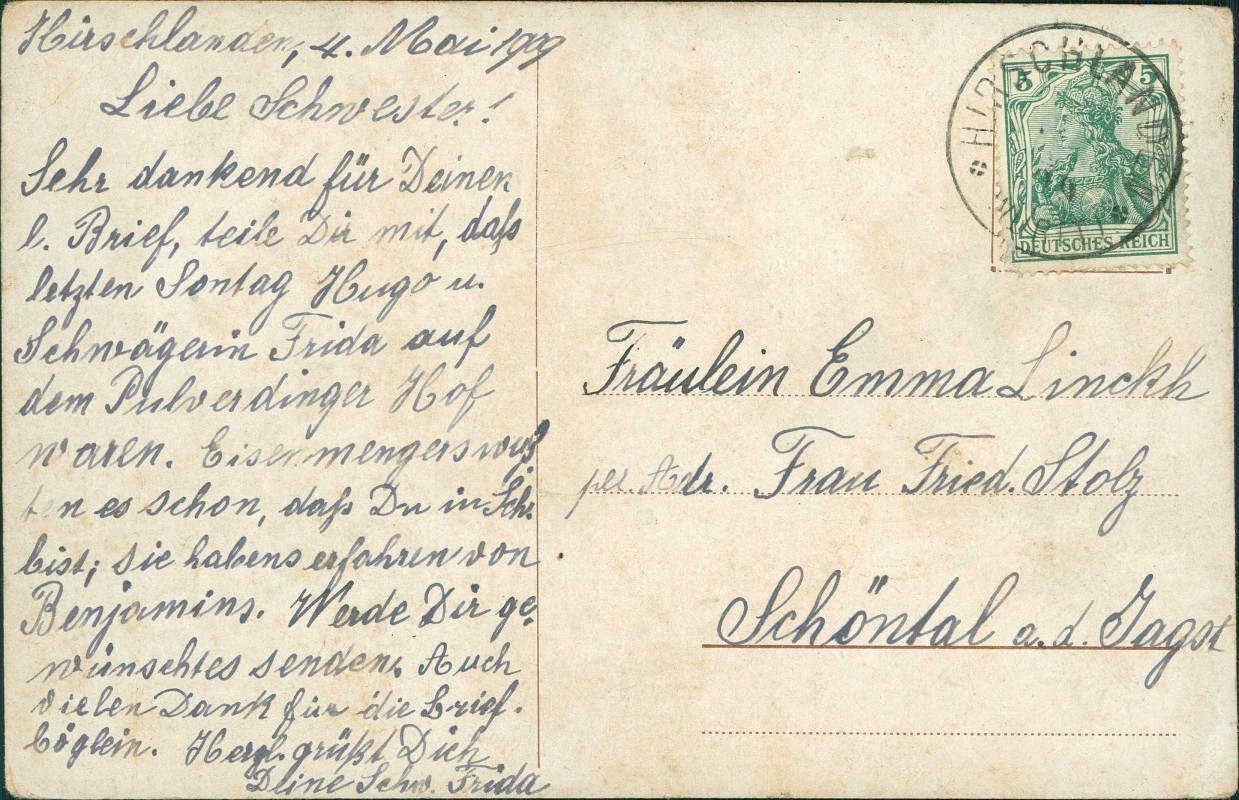 Hirschlanden, 4. Mai 1909
Liebe Schwester!
Sehr dankend für Deinen
l. Brief, teile Dir mit, daß
letzten Sontag Hugo u.
Schwägerin Frida auf
dem Pulverdinger Hof
waren. Eisenmengers wuß
ten es schon, daß Du in Sch.
bist; sie habens erfahren von
Benjamins. Werde Dir ge-
wünschtes senden. Auch
vielen Dank für die Brief-
böglein. Herzl. grüßt Dich
Deine Schw. Frida
HIRSCHLANDEN
5 5
DEUTSCHES REICH
Fräulein Emma Linckh
per Adr. Frau Fried. Stolz
Schöntal a. d. Jagst